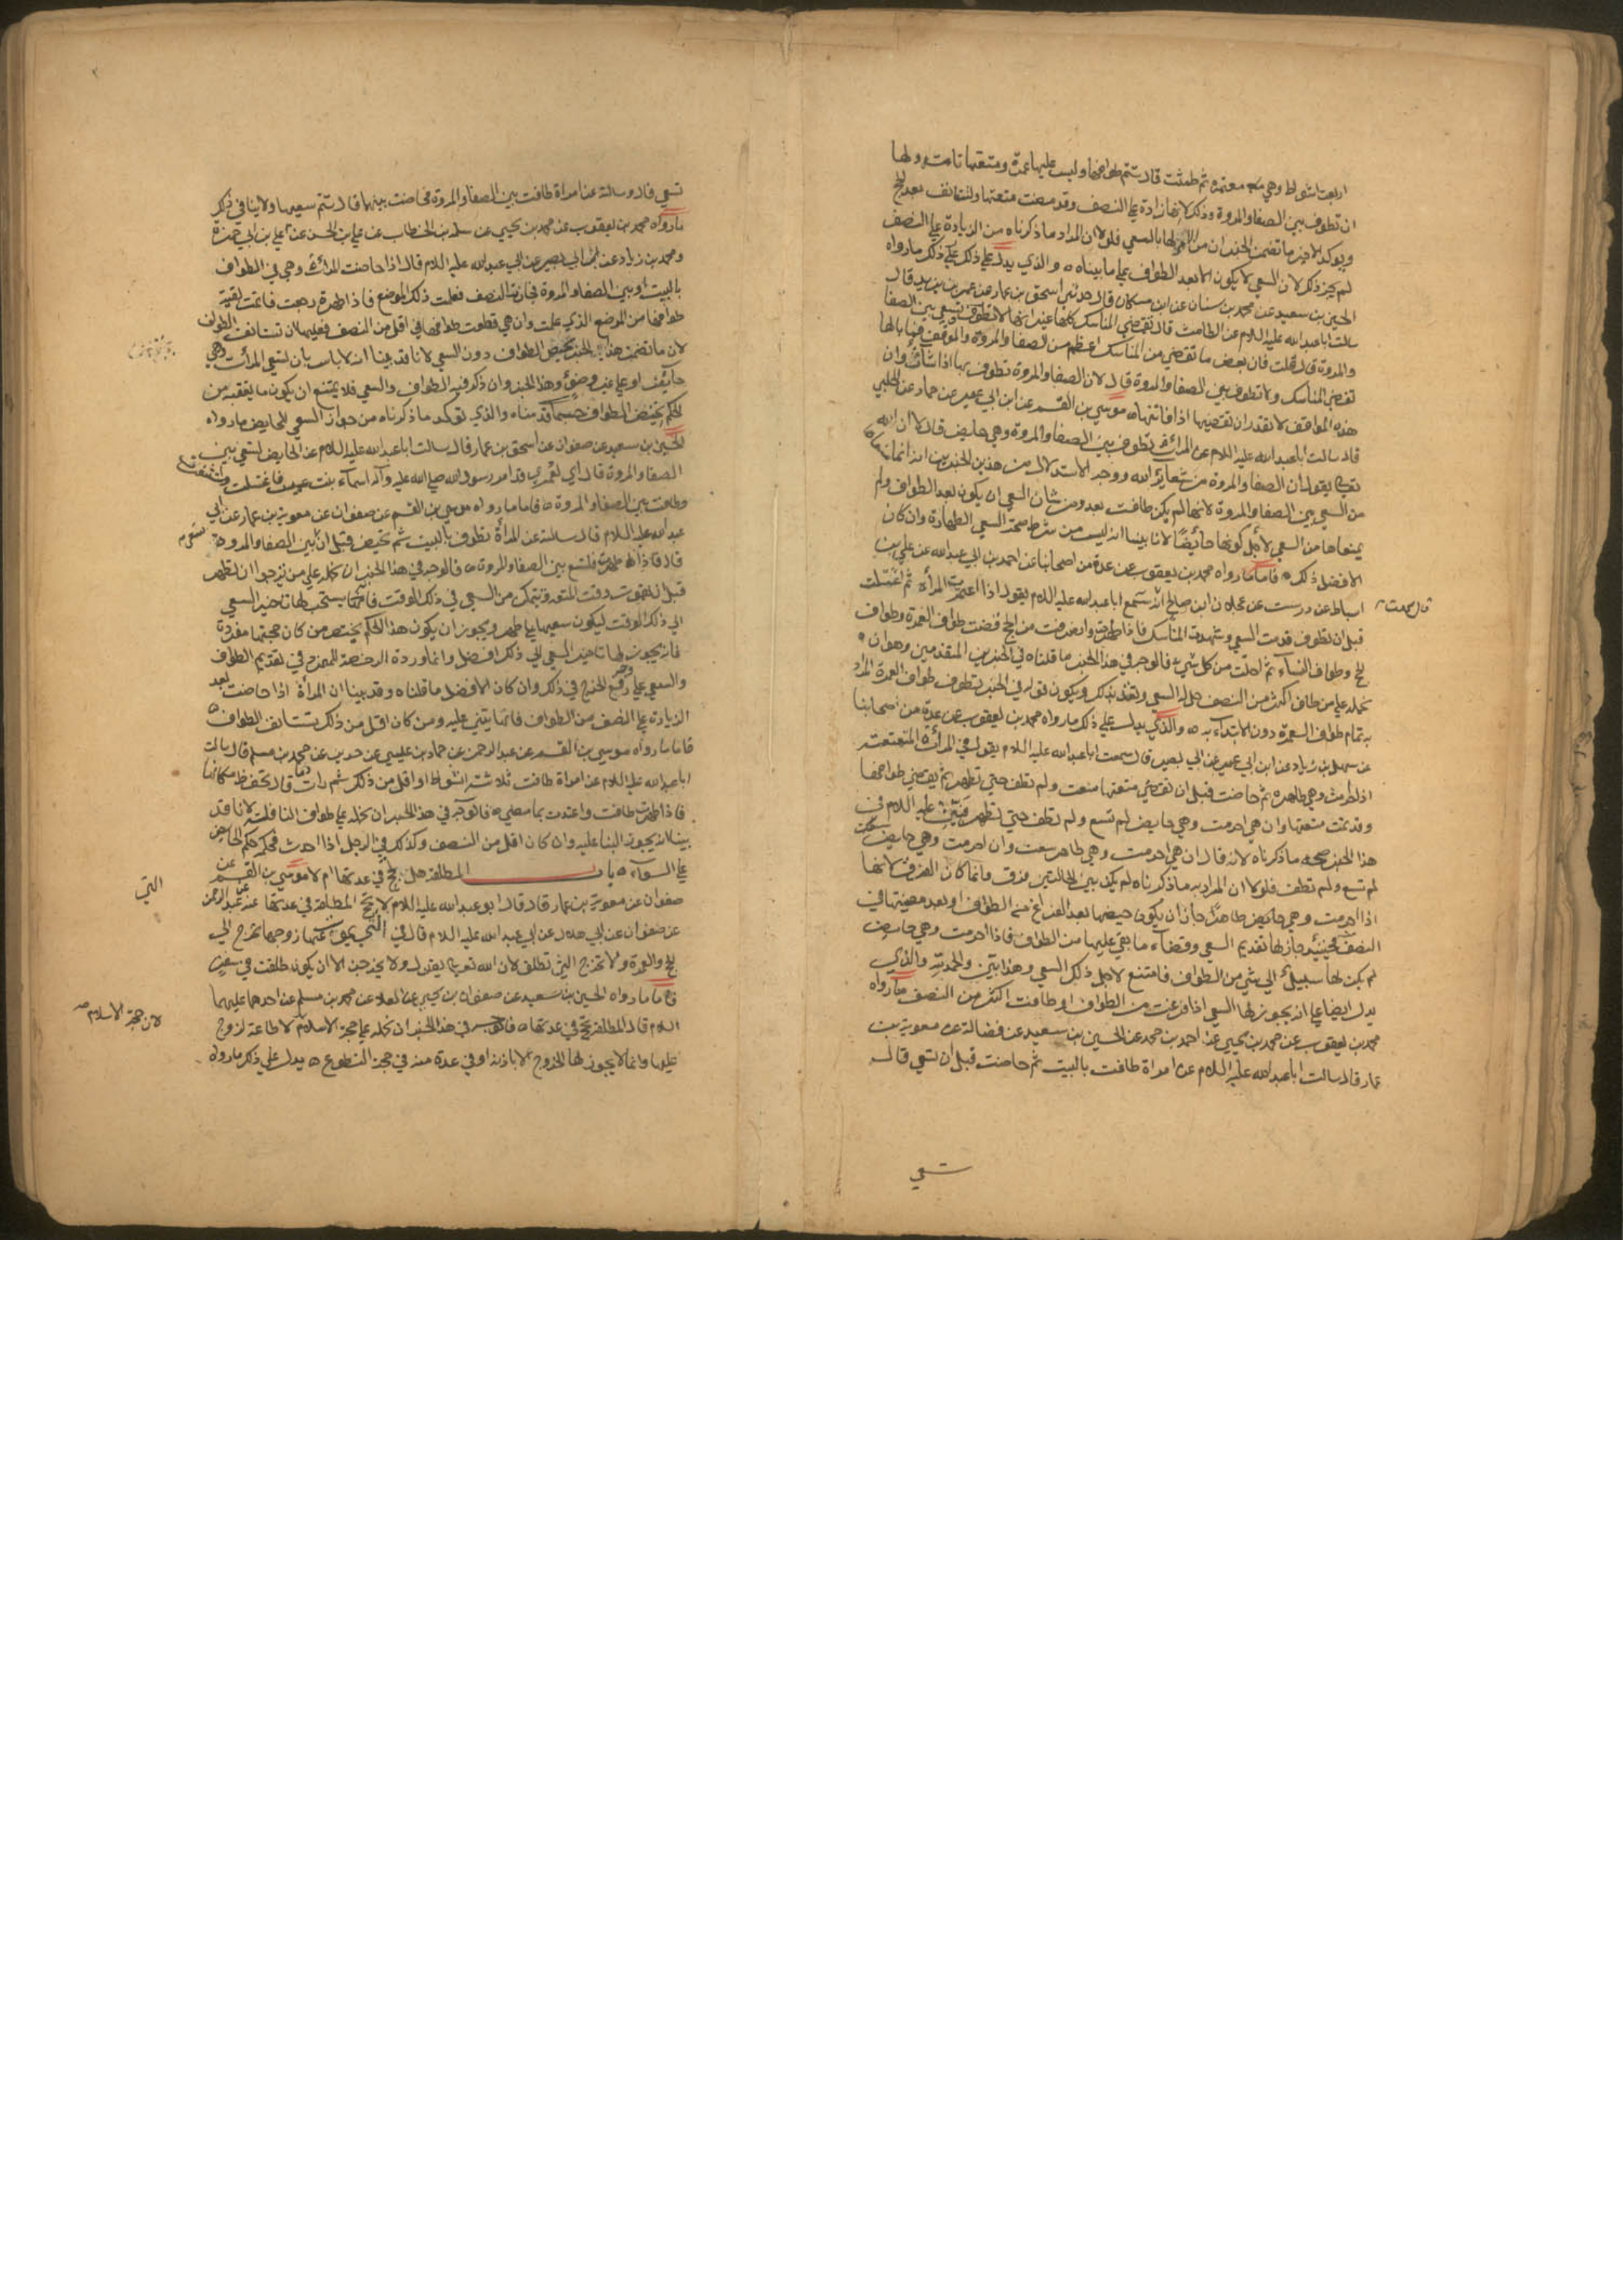 اربعة اشواط وهي معتمرة ثم طمثت قال تتم طوافها وليس عليها عمرة ومتعتها تامة ولها
ان تطوف بين الصفا والمروة وذلك لانها زادة على النصف وقد مضت متعتها ولتستانف بعد الحج
ويوكد لا حيز ما تضمن الخبر ان من الامر لها بالسعي فلولا ان المراد ما ذكرناه من الزيادة على النصف
لم يجز ذلك لان السعي لا يكون الا بعد الطواف على ما بيناه ه والذي يدل على ذلك ما رواه
الحسين بن سعيد عن محمد بن سنان عن ابن مسكان قال حدثني اسحق بن عمار عن عمر بن يزيد قال
سالت ابا عبد الله عليه السلام عن الطامث قال تقضي المناسك كلها غير انها لا تطوف بين الصفا
والمروة قال قلت فان بعض ما تقضي من المناسك اعظم من الصفا والمروة والموقف فما بالها
تقضي المناسك ولا تطوف بين الصفا والمروة قال لان الصفا والمروة تطوف بهما اذا شاءت وان
هذه المواقف لا تقدر ان تقضيها اذا فاتتها ه موسي بن القسم عن ابن ابي عمير عن حماد عن الحلبي
قال سالت ابا عبد الله عليه السلام عن المرأة تطوف بين الصفا والمروة وهي حايض قال لا ان الله
تعالى يقول ان الصفا والمروة من شعائر الله ووجه الاستدلال من هذين الخبرين انه انما
من السعي بين الصفا والمروة لانها لم يكن طافت بعد ومن شان السعي ان يكون بعد الطواف ولم
يمنعاها من السعي لاجل كونها حائضا لانا بينا انه ليس من شرط صحة السعي الطهارة وان كان
الافضل ذلك ه فاما ما رواه محمد بن يعقوب عن عدة من اصحابنا عن احمد بن ابي عبد الله عن علي بن
اسباط عن درست عن عجلان ابن صالح انه سمع ابا عبد الله عليه السلام يقول اذا اعتمرت المرأة ثم اعتلت
قبل ان تطوف قدمت السعي وشهدت المناسك فاذا طهرت وانصرفت من الحج قضت طواف العمرة وطواف
الحج وطواف النساء ثم احلت من كل شيء فالوجه في هذا الخبر ما قلناه في الخبرين المتقدمين وهو ان
نحمله على من طاف اكثر من النصف ويكون قوله في الخبر تطوف طواف العمرة المراد
به تمام طواف العمرة دون الابتداء به ه والذي يدل على ذلك ما رواه محمد بن يعقوب عن عدة من اصحابنا
عن سهل بن زياد عن ابن ابي عمير عن ابي بصير قال سمعت ابا عبد الله عليه السلام يقول في المرأة المتمتعة
اذا احرمت وهي طاهرة ثم حاضت قبل ان تقضي متعتها سعت ولم تطف حتى تطهر ثم تقضي طوافها
وقد تمت متعتها وان هي احرمت وهي حايض لم تسع ولم تطف حتى تطهر فبين عليه السلام في
هذا الخبر صحة ما ذكرناه لانه قال ان هي احرمت وهي طاهر سعت وان احرمت وهي حايض
لم تسع ولم تطف فلولا ان المراد به ما ذكرناه لم يكن بين الحالتين فرق وانما كان الفرق لانها
اذا احرمت وهي حايض طاهرا جاز ان يكون حيضها بعد الفراغ من الطواف او بعد مضيها في
النصف فحينئذ جاز لها تقديم السعي وقضاء ما بقي عليها من الطواف فاذا احرمت وهي حايض
لم يكن لها سبيل الى شي من الطواف فامتنع لاجل ذلك السعي وهذا بين والحمد لله والذي
يدل ايضا على انه يجوز لها السعي اذا فرغت من الطواف او طافت اكثر من النصف ما رواه
محمد بن يعقوب عن محمد بن يحيى عن احمد بن محمد عن الحسين بن سعيد عن فضالة عن معوية بن
عمار قال سالت ابا عبد الله عليه السلام عن امراة طافت بالبيت ثم حاضت قبل ان تسعى قال
تسعى
تسعي قال وسالته عن امراة طافت بين الصفا والمروة فحاضت بينهما قال تتم سعيها ولا ينافي ذلك
ما رواه محمد بن يعقوب عن محمد بن يحيى عن سلمة بن الخطاب عن علي بن الحسن عن علي بن ابي حمزة
ومحمد بن زياد عن ابي بصير عن ابي عبد الله عليه السلام قال اذا حاضت المرأة وهي في الطواف
بالبيت او بين الصفا والمروة فجازت النصف فعلمت ذلك الموضع فاذا طهرت رجعت فاتمت بقية
طوافها من الموضع الذي علمت وان هي قطعت طوافها في اقل من النصف فعليها ان تستانف الطواف
لان ما تضمن هذا الخبر يخص الطواف دون السعي لانا قد بينا انه لا باس بان تسعى المرأة وهي
حايض او على غير وضوء وهذا الخبر وان ذكر فيه الطواف والسعي فلا يمتنع ان يكون ما يعقبه من
الحكم يختص الطواف حسبما قدمناه والذي يوكد ما ذكرناه من جواز السعي للحايض ما رواه
الحسين بن سعيد عن صفوان عن اسحق بن عمار قال سالت ابا عبد الله عليه السلام عن الحايض تسعى بين
الصفا والمروة قال اي لعمري قد امر رسول الله صلى الله عليه وآله اسماء بنت عميس فاغتسلت واستثفرت
وطافت بين الصفا والمروة ه فاما ما رواه موسي بن القسم عن صفوان عن معوية بن عمار عن ابي
عبد الله عليه السلام قال سالته عن المرأة تطوف بالبيت ثم تحيض قبل ان تسعى بين الصفا والمروة
قال فاذا طهرت فلتسع بين الصفا والمروة ه فالوجه في هذا الخبر ان نحمله على من ترجوا ان تطهر
قبل ان يفوت وقت المتعة وتتمكن من السعي في ذلك الوقت فانما يستحب لها تاخير السعي
الى ذلك الوقت ليكون سعيها على طهر ويجوز ان يكون هذا الحكم يختص من كان حجتها مفردة
فانه يجوز لها تاخير السعي الى ذلك افضل وانما وردة الرخصة للمفرد في تقديم الطواف
والسعي على رفع الحرج في ذلك وان كان الافضل ما قلناه وقد بينا ان المرأة اذا حاضت بعد
الزيادة على النصف من الطواف فانما يبني عليه ومن كان اقل من ذلك تستانف الطواف ه
فاما ما رواه موسي بن القسم عن عبد الرحمن عن حماد بن عيسي عن حريز عن محمد بن مسلم قال سالت
ابا عبد الله عليه السلام عن امراة طافت ثلاثة اشواط او اقل من ذلك ثم رات دما قال تحفظ مكانها
فاذا طهرت طافت واعتدت بما مضى ه فالوجه في هذا الخبر ان نحمله على طواف النافلة لانا قد
بينا انه يجوز البنا عليه وان كان اقل من النصف وكذلك في الرجل اذا احدث فحكمه حكم الحايض
على السواء ه باب المطلقة هل تحج في عدتها ام لا موسي بن القسم عن
صفوان عن معوية بن عمار قال قال ابو عبد الله عليه السلام لا تحج المطلقة في عدتها عنه عن عبد الرحمن
عن صفوان عن ابي هلال عن ابي عبد الله عليه السلام قال في التي يموت عنها زوجها تخرج الى
الحج والعمرة ولا تخرج التي تطلق لان الله تعالى يقول ولا يخرجن الا ان يكون طلقت في سفر
فاما ما رواه الحسين بن سعيد عن صفوان بن يحيى عن العلا عن محمد بن مسلم عن احدهما عليهما
السلام قال المطلقة تحج في عدتها ه فالوجه في هذا الخبر ان نحمله على حجة الاسلام لا طاعة لزوج
عليها وانما لا يجوز لها الخروج الا باذنه او في عدة منه في حجة التطوع ه يدل على ذلك ما رواه
التي
لان حجة الاسلام صح